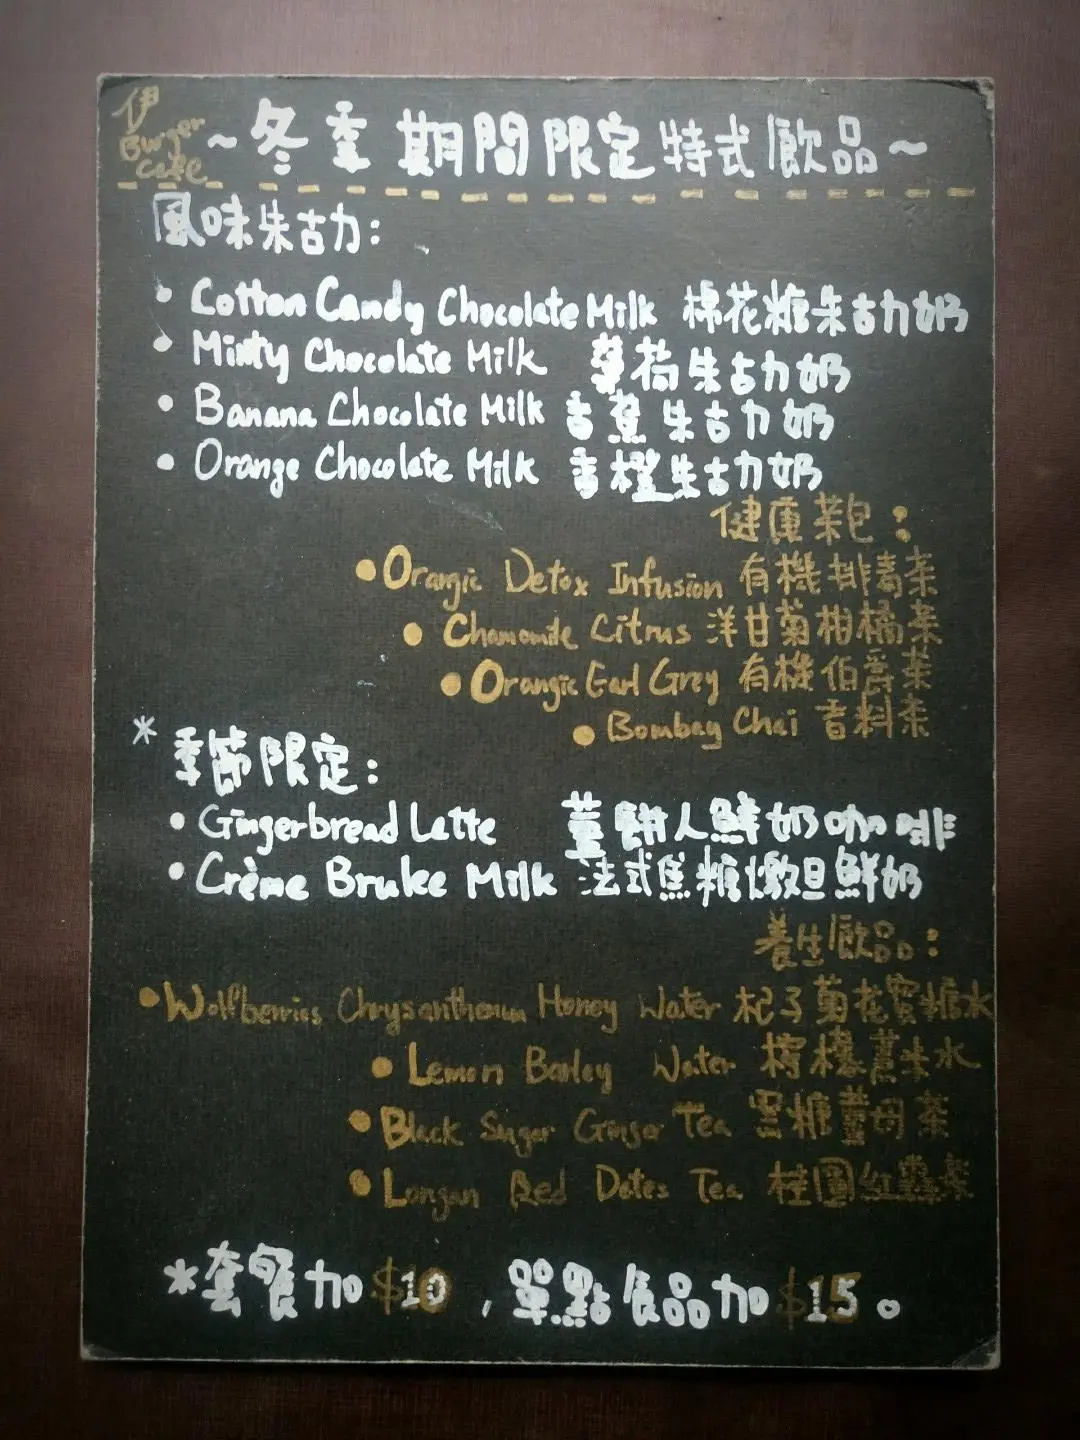 伊
Burger
cafe
~冬季期間限定特式飲品~
風味朱古力:
• Cotton Candy Chocolate Milk 棉花糖朱古力奶
• Minty Chocolate Milk 薄荷朱古力奶
• Banana Chocolate Milk 香蕉朱古力奶
• Orange Chocolate Milk 香橙朱古力奶
健康茶包:
• Orangic Detox Infusion 有機排毒茶
• Chamomile Citrus 洋甘菊柑橘茶
• Orangic Earl Grey 有機伯爵茶
• Bombay Chai 香料茶
* 季節限定:
• Gingerbread Latte 薑餅人鮮奶咖啡
• Crème Brulee Milk 法式焦糖燉旦鮮奶
養生飲品:
• Wolfberries Chrysanthemum Honey Water 杞子菊花蜜糖水
• Lemon Barley Water 檸檬薏米水
• Black Suger Ginger Tea 黑糖薑母茶
• Longan Red Dates Tea 桂圓紅棗茶
*套餐加 $10 , 單點食品加 $15。